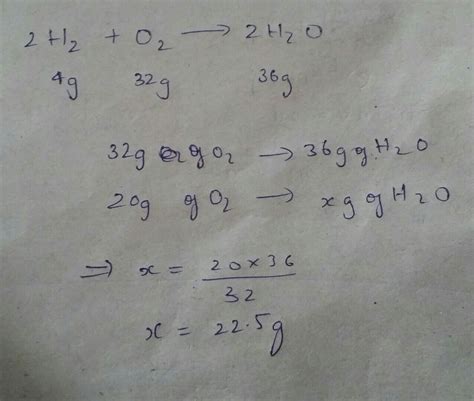 2H₂ + O₂ → 2H₂O
4g 32g 36g
32g of O₂ → 36g of H₂O
20g of O₂ → xg of H₂O
⇒ x = 20×36
32
x = 22.5g